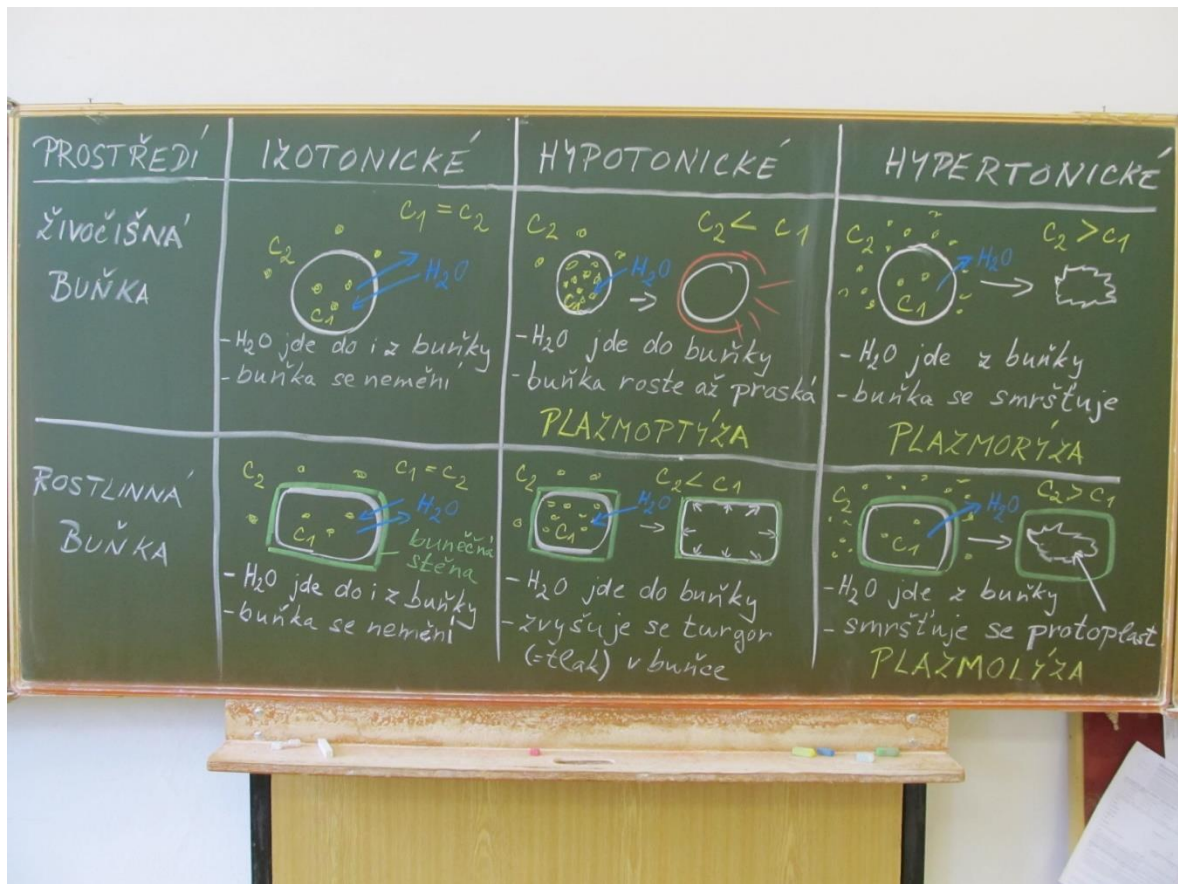 PROSTŘEDÍ
IZOTONICKÉ
HYPOTONICKÉ
HYPERTONICKÉ
ŽIVOČIŠNÁ
BUŇKA
C1 = C2
C2
H2O
C1
- H2O jde do i z buňky
- buňka se nemění
C2
C2 < C1
H2O
C1
- H2O jde do buňky
- buňka roste až praská
PLAZMOPTÝZA
C2
C2 > C1
H2O
C1
- H2O jde z buňky
- buňka se smršťuje
PLAZMORÝZA
ROSTLINNÁ
BUŇKA
C2
C1 = C2
H2O
C1
buněčná
stěna
- H2O jde do i z buňky
- buňka se nemění
C2
C2 < C1
H2O
C1
- H2O jde do buňky
- zvyšuje se turgor
(=tlak) v buňce
C2
C2 > C1
H2O
C1
- H2O jde z buňky
- smršťuje se protoplast
PLAZMOLÝZA